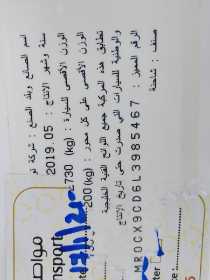 اسم الصانع وبلد الصنع : شركة تو
سنة وشهر الإنتاج : 2019.05
الوزن الأقصى للسيارة : (kg) 2730
الوزن الأقصى على كل محور : (kg) 200
تطابق هذه المركبة جميع اللوائح الفنية الخليجية
والوطنية للسيارات التي صدرت حتى تاريخ الإنتاج
الرقم المميز : MR0CX9CD6L3985467
صنف : شاحنة
مواص
nsport
ter